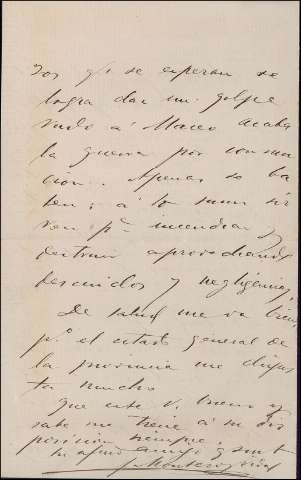 dos q/. se esperan se
logra dar un golpe
rudo á Maceo acaba
la guerra por consun
ción. Apenas se ba
ten; á lo sumo sir
ven pª incendiar y
destruir aprovechando
descuidos y negligencias.
De salud me va bien
pº el estado general de
la provincia me disgus
ta mucho
que esté V. bueno y
sabe me tiene á su dis
posición siempre.
su afmo amigo y
J. Montero y Vidal